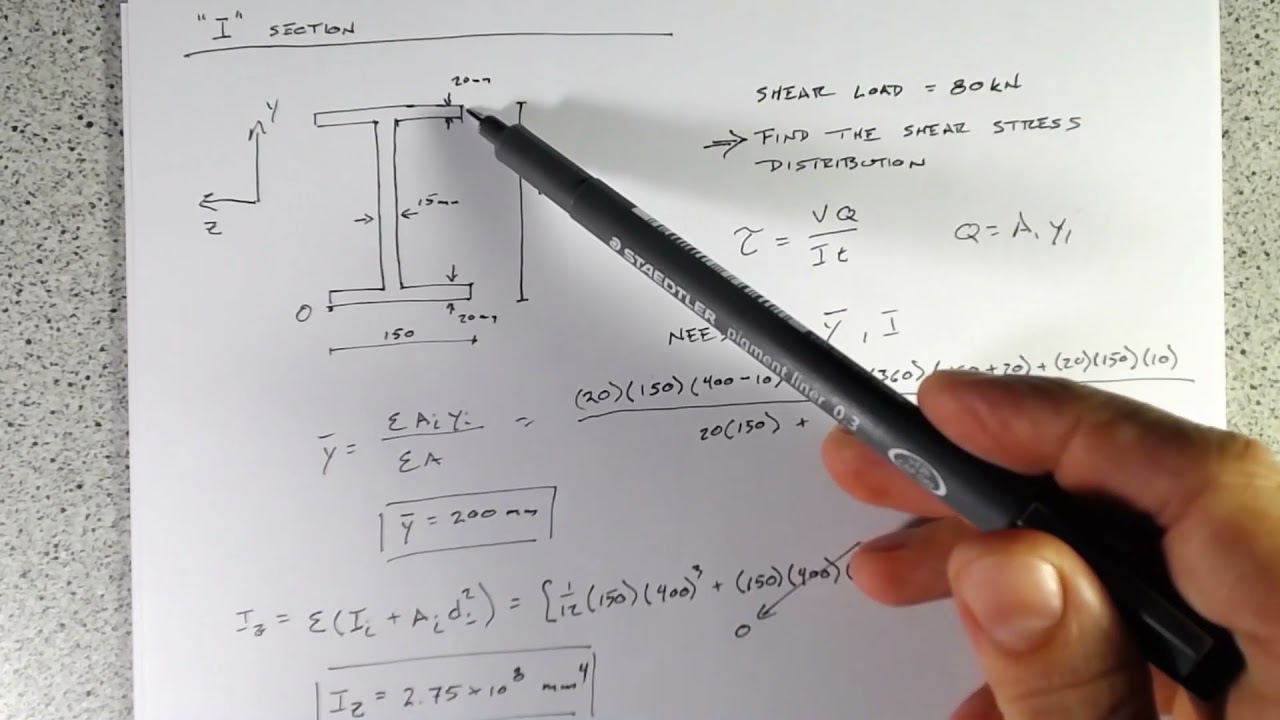 "I" SECTION
20mm
Y
Z
15mm
O
20mm
150
SHEAR LOAD = 80 kN
⇒ FIND THE SHEAR STRESS
DISTRIBUTION
τ = VQ / It
Q = A₁ Y₁
STAEDTLER pigment liner 0.3
ȳ , I
ȳ = ΣAᵢyᵢ / ΣA = (20)(150)(400-10) (360) +20) + (20)(150)(10) / 20(150) +
ȳ = 200 mm
I_z = Σ(Iᵢ + Aᵢdᵢ²) = [1/12 (150)(400)³ + (150)(400)(
O
I_z = 2.75 × 10⁸ mm⁴